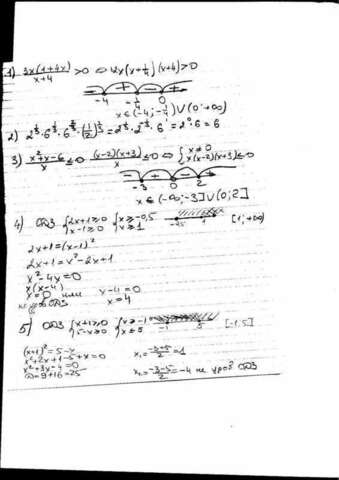 1) 3x(1+4x)/(x+4) >0 ⇔ 12x(x+1/4)(x+4)>0
− + − +
-4 -1/4 0
x∈(-4;-1/4)∪(0;+∞)
2) 2^(1/3)·6^(1/3)·6^(2/3)·(1/2)^(1/3)=2^(1/3)·2^(-1/3)·6^1=2^0·6=6
3) (x²+x-6)/x ≤0 (x-2)(x+3)/x ≤0 ⇔ {x≠0 x(x-2)(x+3)≤0
-3 0 2
x∈(-∞;-3]∪(0;2]
4) ОДЗ {2x+1≥0 x-1≥0 {x≥-0,5 x≥1 [1;+∞)
2x+1=(x-1)²
2x+1=x²-2x+1
x²-4x=0
x(x-4)
x=0 или x-4=0
x=4
ОДЗ
5) ОДЗ {x+1≥0 5-x≥0 {x≥-1 x≤5 -1 5 [-1;5]
(x+1)²=5-x
x²+2x+1-5+x=0
x²+3x-4=0
D=9+16=25
x₁=(-3+5)/2=1
x₂=(-3-5)/2=-4 не удов ОДЗ